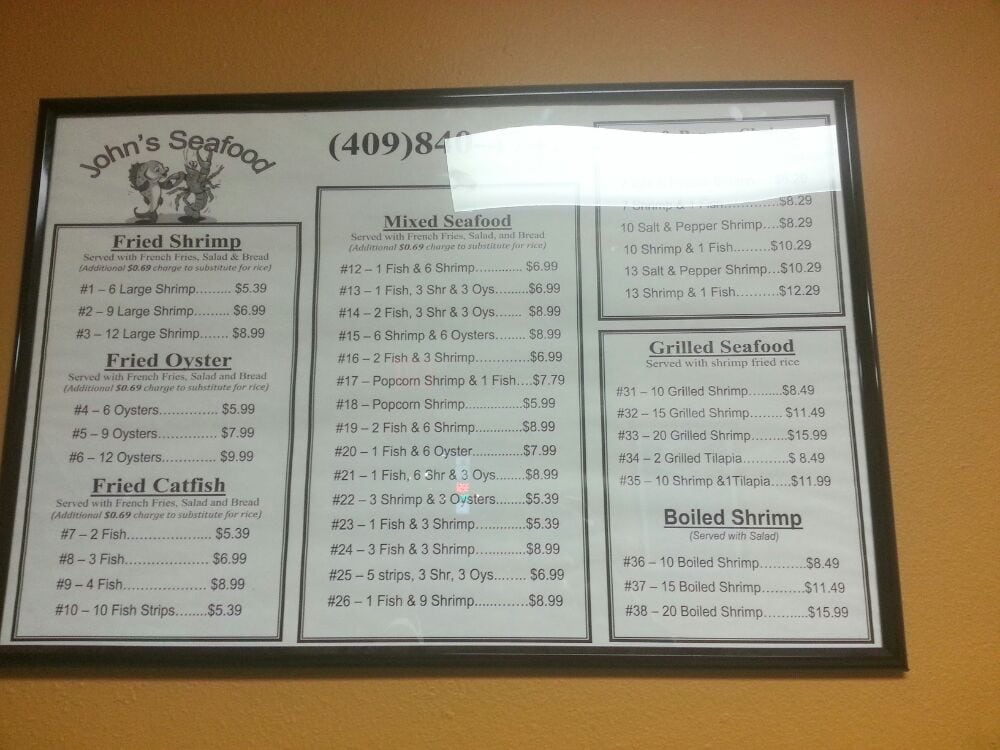 John's Seafood
(409)840
Fried Shrimp
Served with French Fries, Salad & Bread
(Additional $0.69 charge to substitute for rice)
#1 – 6 Large Shrimp......... $5.39
#2 – 9 Large Shrimp......... $6.99
#3 – 12 Large Shrimp....... $8.99
Fried Oyster
Served with French Fries, Salad and Bread
(Additional $0.69 charge to substitute for rice)
#4 – 6 Oysters.............. $5.99
#5 – 9 Oysters.............. $7.99
#6 – 12 Oysters............. $9.99
Fried Catfish
Served with French Fries, Salad and Bread
(Additional $0.69 charge to substitute for rice)
#7 – 2 Fish..................... $5.39
#8 – 3 Fish..................... $6.99
#9 – 4 Fish..................... $8.99
#10 – 10 Fish Strips........$5.39
Mixed Seafood
Served with French Fries, Salad, and Bread
(Additional $0.69 charge to substitute for rice)
#12 – 1 Fish & 6 Shrimp............. $6.99
#13 – 1 Fish, 3 Shr & 3 Oys.........$6.99
#14 – 2 Fish, 3 Shr & 3 Oys....... $8.99
#15 – 6 Shrimp & 6 Oysters......... $8.99
#16 – 2 Fish & 3 Shrimp..............$6.99
#17 – Popcorn Shrimp & 1 Fish....$7.79
#18 – Popcorn Shrimp...............$5.99
#19 – 2 Fish & 6 Shrimp.............$8.99
#20 – 1 Fish & 6 Oyster.............$7.99
#21 – 1 Fish, 6 Shr & 3 Oys........$8.99
#22 – 3 Shrimp & 3 Oysters........$5.39
#23 – 1 Fish & 3 Shrimp.............$5.39
#24 – 3 Fish & 3 Shrimp.............$8.99
#25 – 5 strips, 3 Shr, 3 Oys........ $6.99
#26 – 1 Fish & 9 Shrimp.............$8.99
7 Shrimp & 1 Fish.............$8.29
10 Salt & Pepper Shrimp....$8.29
10 Shrimp & 1 Fish.........$10.29
13 Salt & Pepper Shrimp...$10.29
13 Shrimp & 1 Fish..........$12.29
Grilled Seafood
Served with shrimp fried rice
#31 – 10 Grilled Shrimp.........$8.49
#32 – 15 Grilled Shrimp........ $11.49
#33 – 20 Grilled Shrimp.........$15.99
#34 – 2 Grilled Tilapia...........$ 8.49
#35 – 10 Shrimp &1Tilapia.....$11.99
Boiled Shrimp
(Served with Salad)
#36 – 10 Boiled Shrimp...........$8.49
#37 – 15 Boiled Shrimp..........$11.49
#38 – 20 Boiled Shrimp...........$15.99